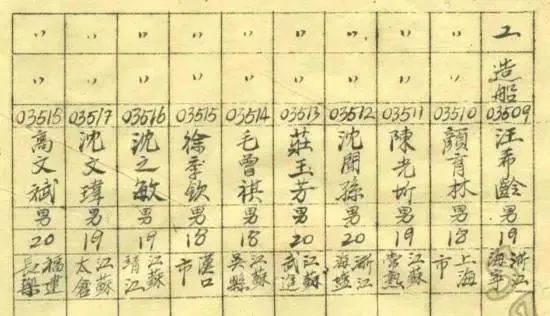 工 造船 03509 汪希齡 男 19 浙江海寧
〃 〃 03510 顏育林 男 18 上海市
〃 〃 03511 陳光圻 男 19 江蘇常熟
〃 〃 03512 沈聞孫 男 20 浙江海鹽
〃 〃 03513 莊玉芳 男 20 江蘇武進
〃 〃 03514 毛曾祺 男 18 江蘇吳縣
〃 〃 03515 徐季欽 男 18 漢口市
〃 〃 03516 沈之敏 男 19 江蘇靖江
〃 〃 03517 沈文瑋 男 19 江蘇太倉
〃 〃 03518 高文斌 男 20 福建長樂